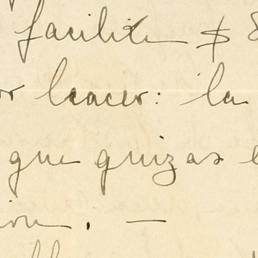 facilite $
hacer: la
que quizas